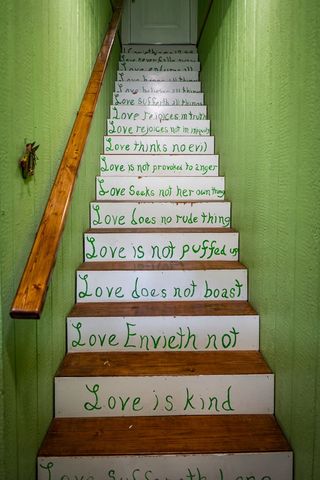 Love never fails
Love endures all
Love hopes all things
Love believes all things
Love suffereth all things
Love rejoices in truth
Love rejoices not in iniquity
Love thinks no evil
Love is not provoked to anger
Love Seeks not her own
Love does no rude thing
Love is not puffed up
Love does not boast
Love Envieth not
Love is kind
Love Suffereth Long